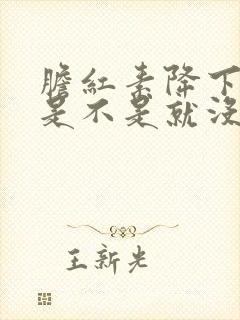 膽红素降下
是不是就没
王新光